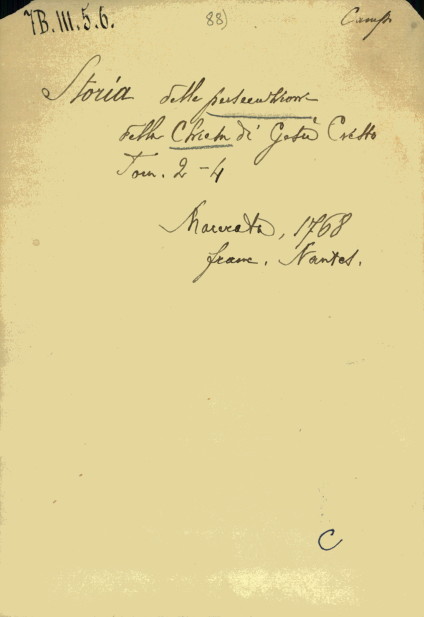 7B.III.5.6. 88) Camp.
Storia delle persecuzioni
della Chiesa di Gesù Cristo
Tom. 2-4
Macerata, 1768
franc. Nantes.
C